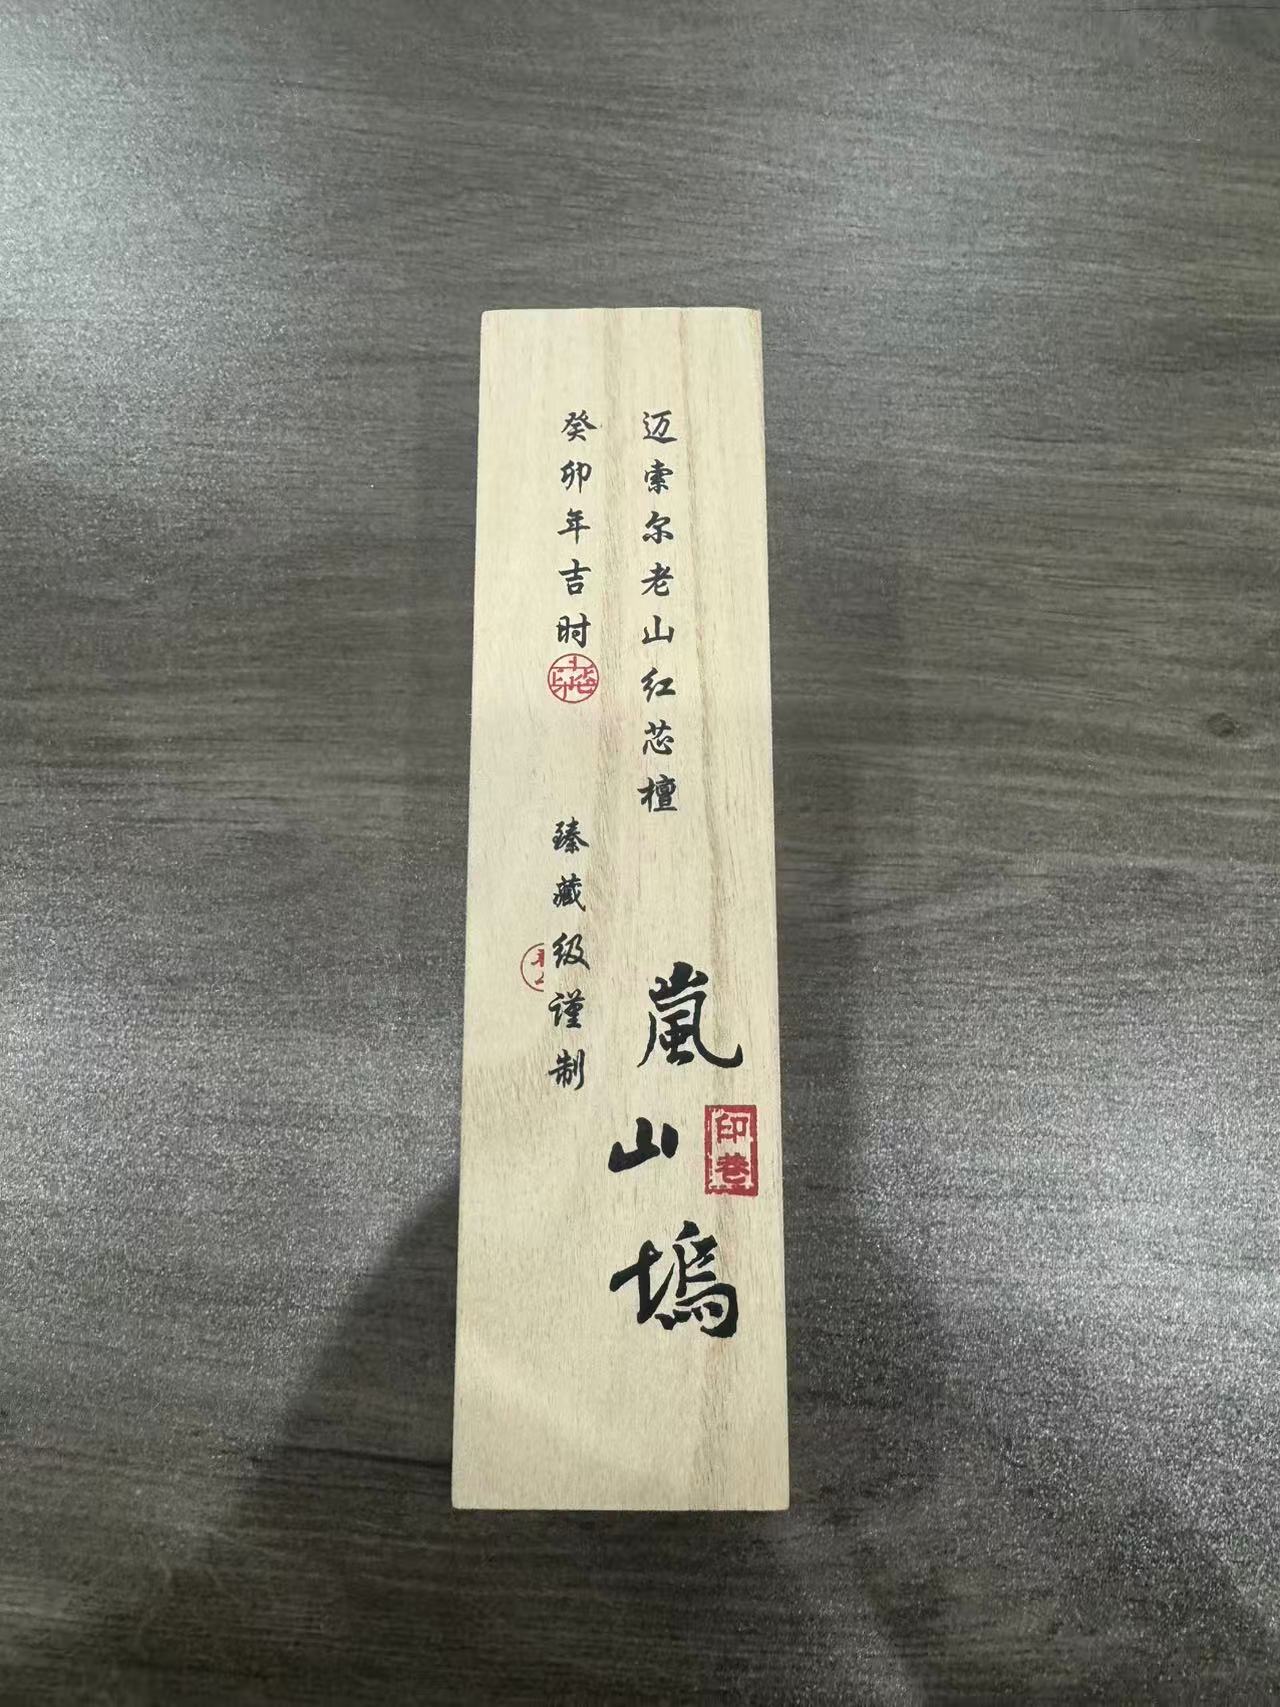 迈索尔老山红芯檀
嵐山塢
印卷
癸卯年吉时
臻藏级谨制